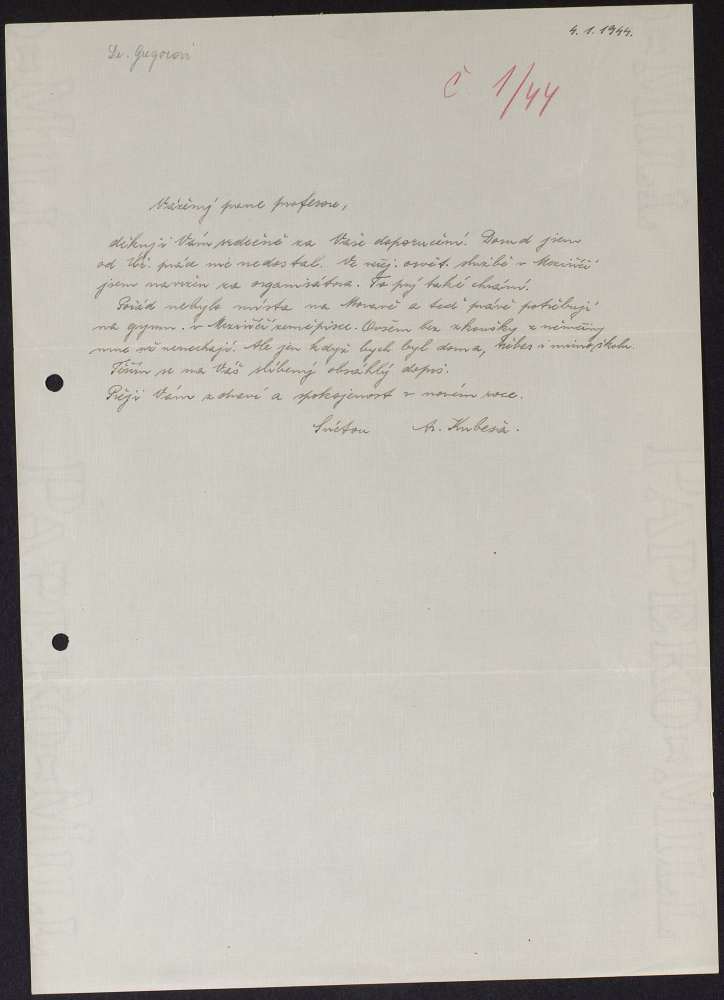 4. 1. 1944.
Dr. Gregorovi
Č 1/44
Vážený pane profesore,
děkuji Vám srdečně za Vaše doporučení. Domů jsem
od úř. práce nic nedostal. Ve veř. osvět. službě v Meziříčí
jsem navržen za organisátora. To prý také chrání.
Pořád nebylo místa na Moravě a teď právě potřebují
na gymn. v Meziříčí zeměpisce. Ovšem bez zkoušky z němčiny
mne už nenechají. Ale jen když bych byl doma, třebas i mimo školu.
Těším se na Váš slíbený obsáhlý dopis.
Přeji Vám zdraví a spokojenost v novém roce.
Ar. Kubesa.
PAPEROEMILL